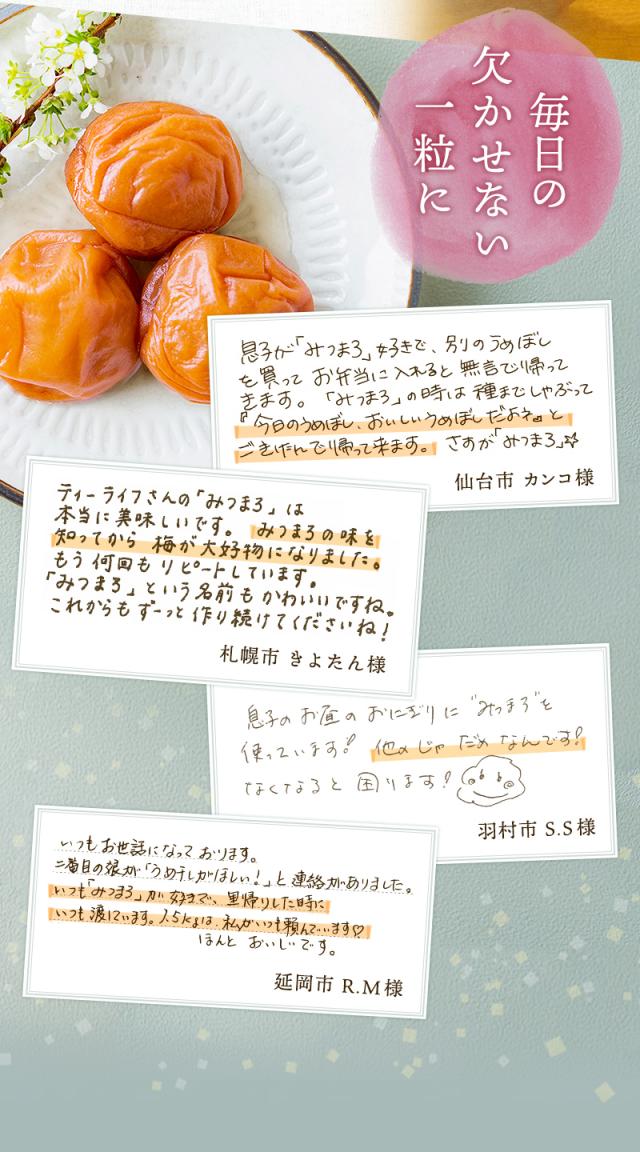 毎日の
欠かせない
一粒に
息子が「みつまろ」好きで、別のうめぼし
を買って お弁当に入れると 無言で帰って
きます。「みつまろ」の時は 種までしゃぶって
『今日のうめぼし、おいしいうめぼしだよね』と
ごきげんで帰って来ます。さすが「みつまろ」☆
仙台市 カンコ様
ティーライフさんの「みつまろ」は
本当に美味しいです。 みつまろの味を
知ってから 梅が大好物になりました。
もう何回もリピートしています。
「みつまろ」という名前もかわいいですね。
これからもずーっと作り続けてくださいね!
札幌市 きよたん様
息子のお昼のおにぎりに"みつまろ"を
使っています! 他のじゃ だめ なんです!
なくなると 困ります!
羽村市 S.S様
いつもお世話になって おります。
二番目の娘が「うめ干しがほしい!」と連絡がありました。
いつも「みつまろ」が 好きで、里帰りした時に
いつも渡しています。1.5kgは、私がいつも頼んでいます♡
ほんと おいしいです。
延岡市 R.M様